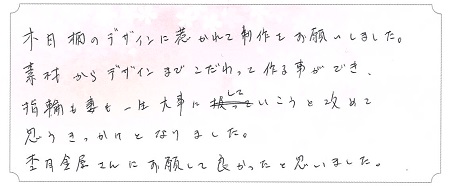 木目柄のデザインに惹かれて制作をお願いしました。
素材からデザインまでこだわって作る事ができ、
指輪も妻も一生大事にしていこうと改めて
思うきっかけとなりました。
杢目金屋さんにお願して良かったと思いました。